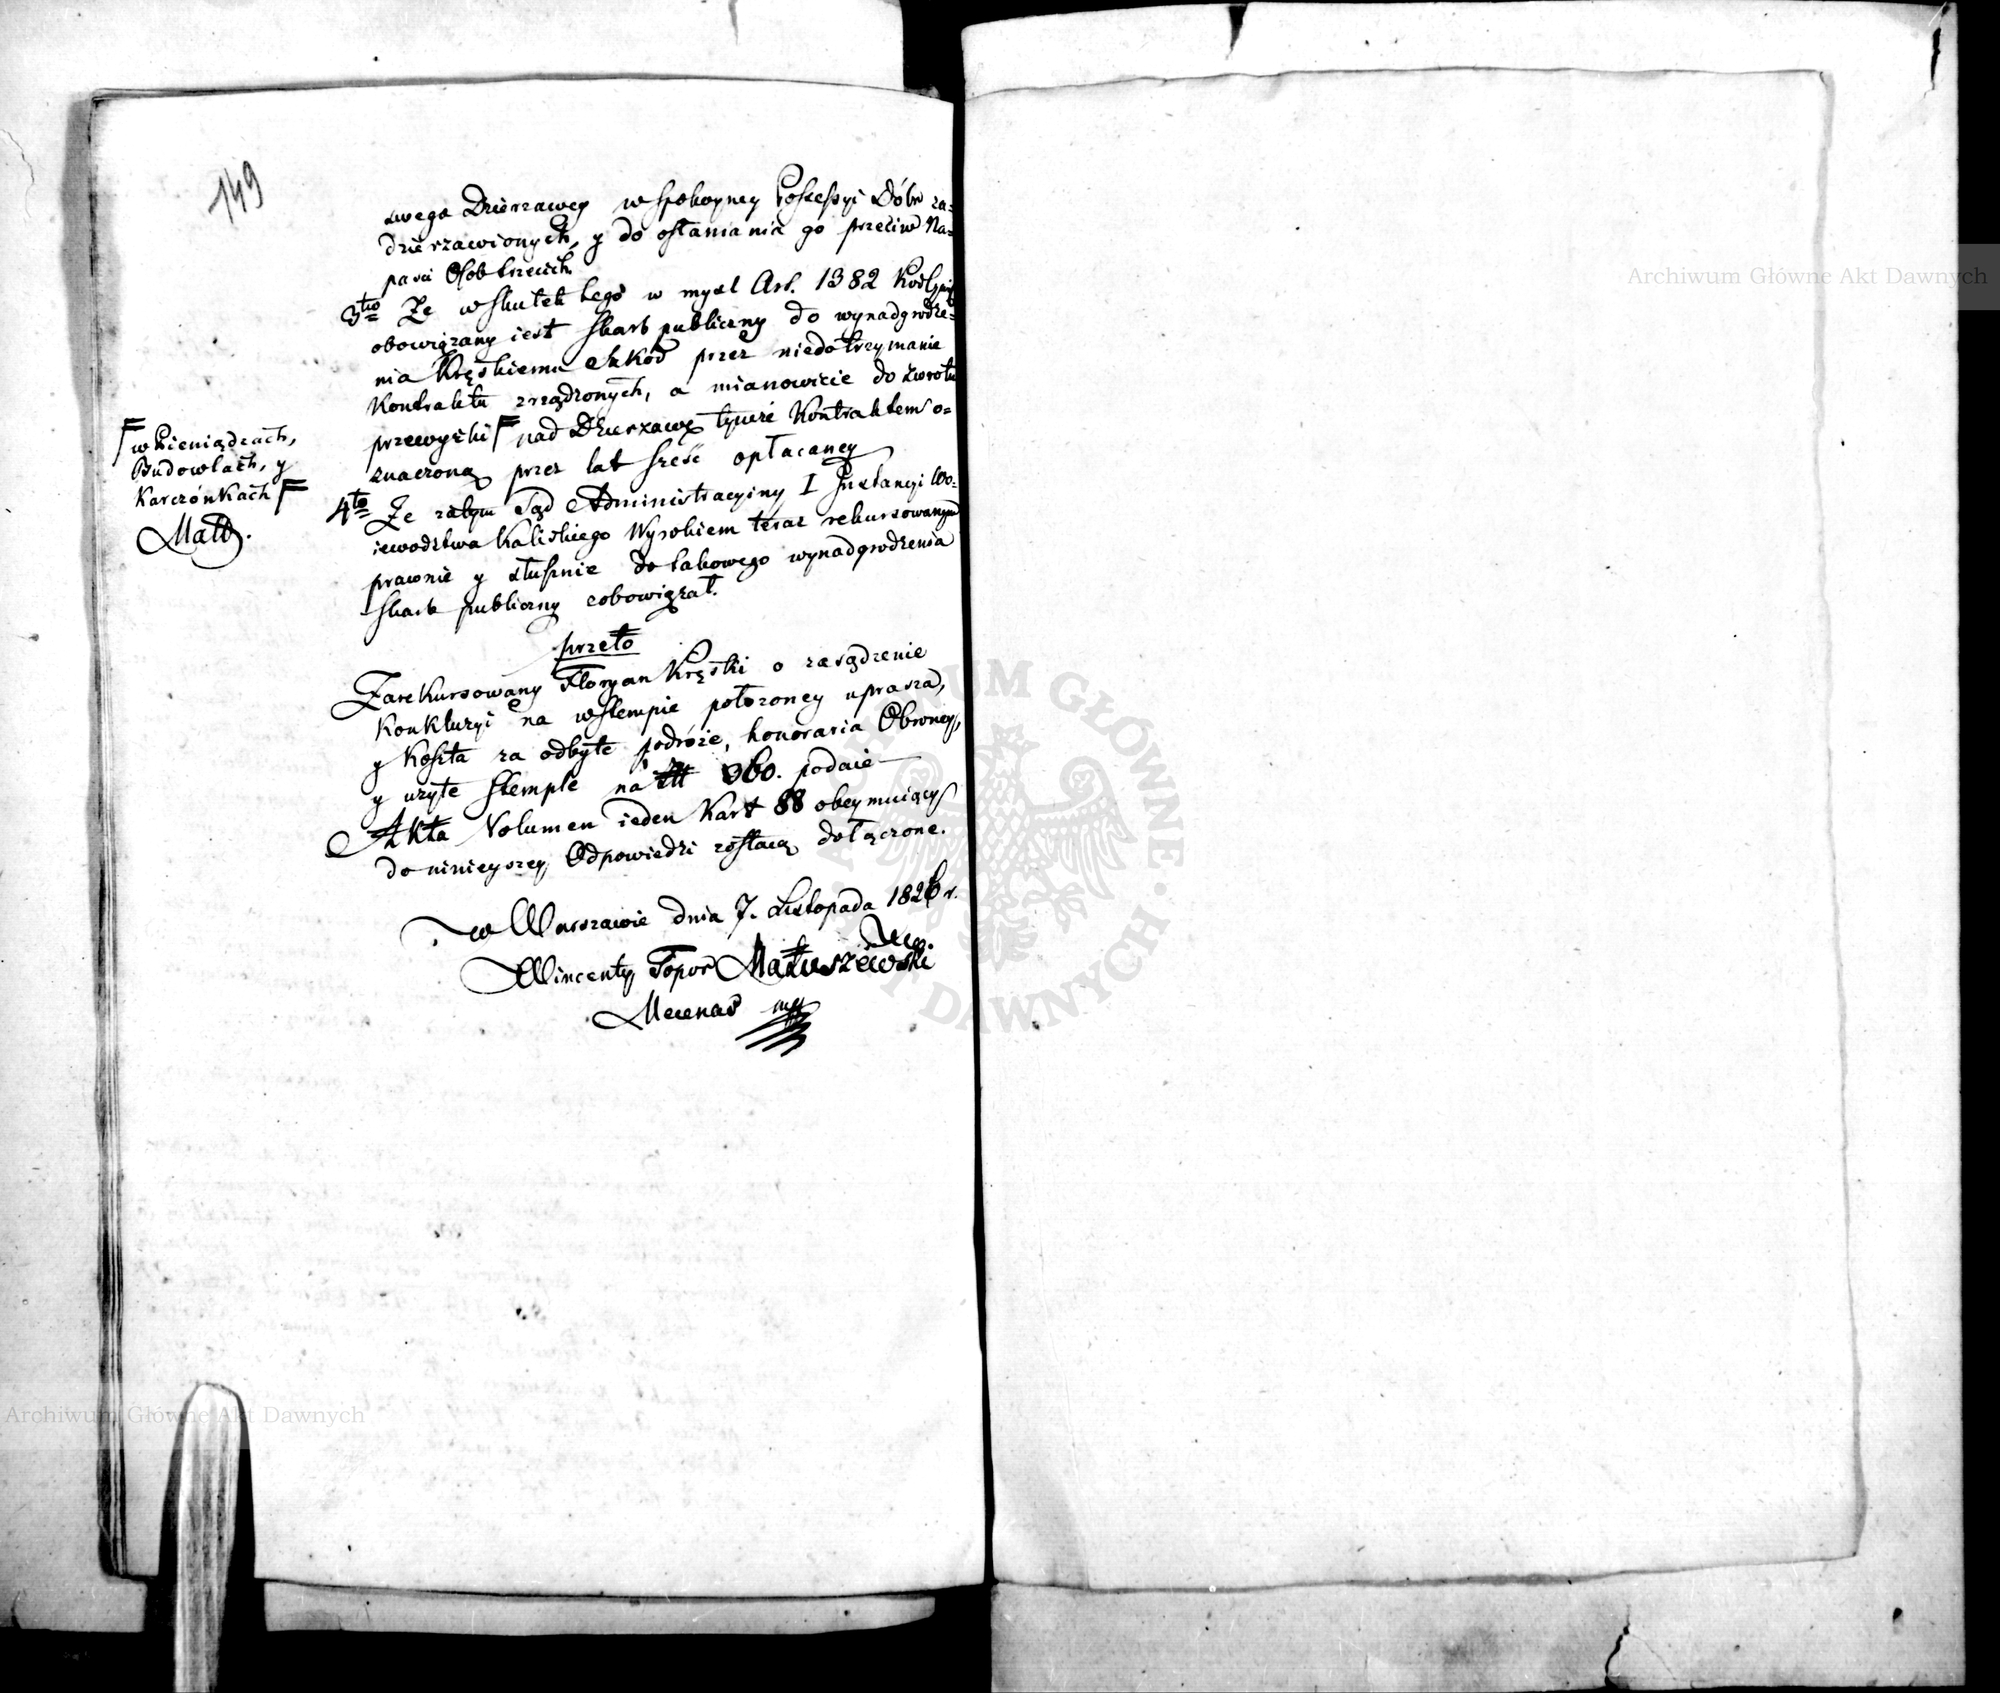 149
swego Dzierzawcy w spokoyney Possessyi Dóbr za=
dzierzawionych, y do osłaniania go przeciw Na=
paści Osob trzecich.
3tio Że w skutek tego w myśl Art. 1382
obowiązany iest Skarb publiczny do wynadgrodze=
nia Kręskiemu Szkód przez niedotrzymanie
Kontraktu zrządzonych, a mianowicie do zwrotu
przewyżki F nad Dzierzawę tymże Kontraktem o=
znaczoną przez lat sześć opłacaney
F w Pieniądzach,
Budowlach, y
Karczónkach F
Matt.
4to Że zatym Sąd Administracyiny I Instancyi Wo=
iewodztwa Kaliskiego Wyrokiem teraz rekursowanym
prawnie y słusznie do takowego wynadgrodzenia
Skarb publiczny zobowiązał.
przeto
Zarekursowany Floryan Kręski o zasądzenie
Konkluzyi na wstempie położoney uprasza,
y Koszta za odbyte podróże, honoraria Obrońcy,
y użyte stemple na 360. podaie
Akta Volumen ieden Kart 88 obeymuiący
do ninieyszey Odpowiedzi zostaią dołączone.
w Warszawie dnia 7. Listopada 1826 r.
Wincenty Topór Matuszewski
Mecenas mp
Archiwum Główne Akt Dawnych
Archiwum Główne Akt Dawnych
ARCHIWUM GŁÓWNE AKT DAWNYCH